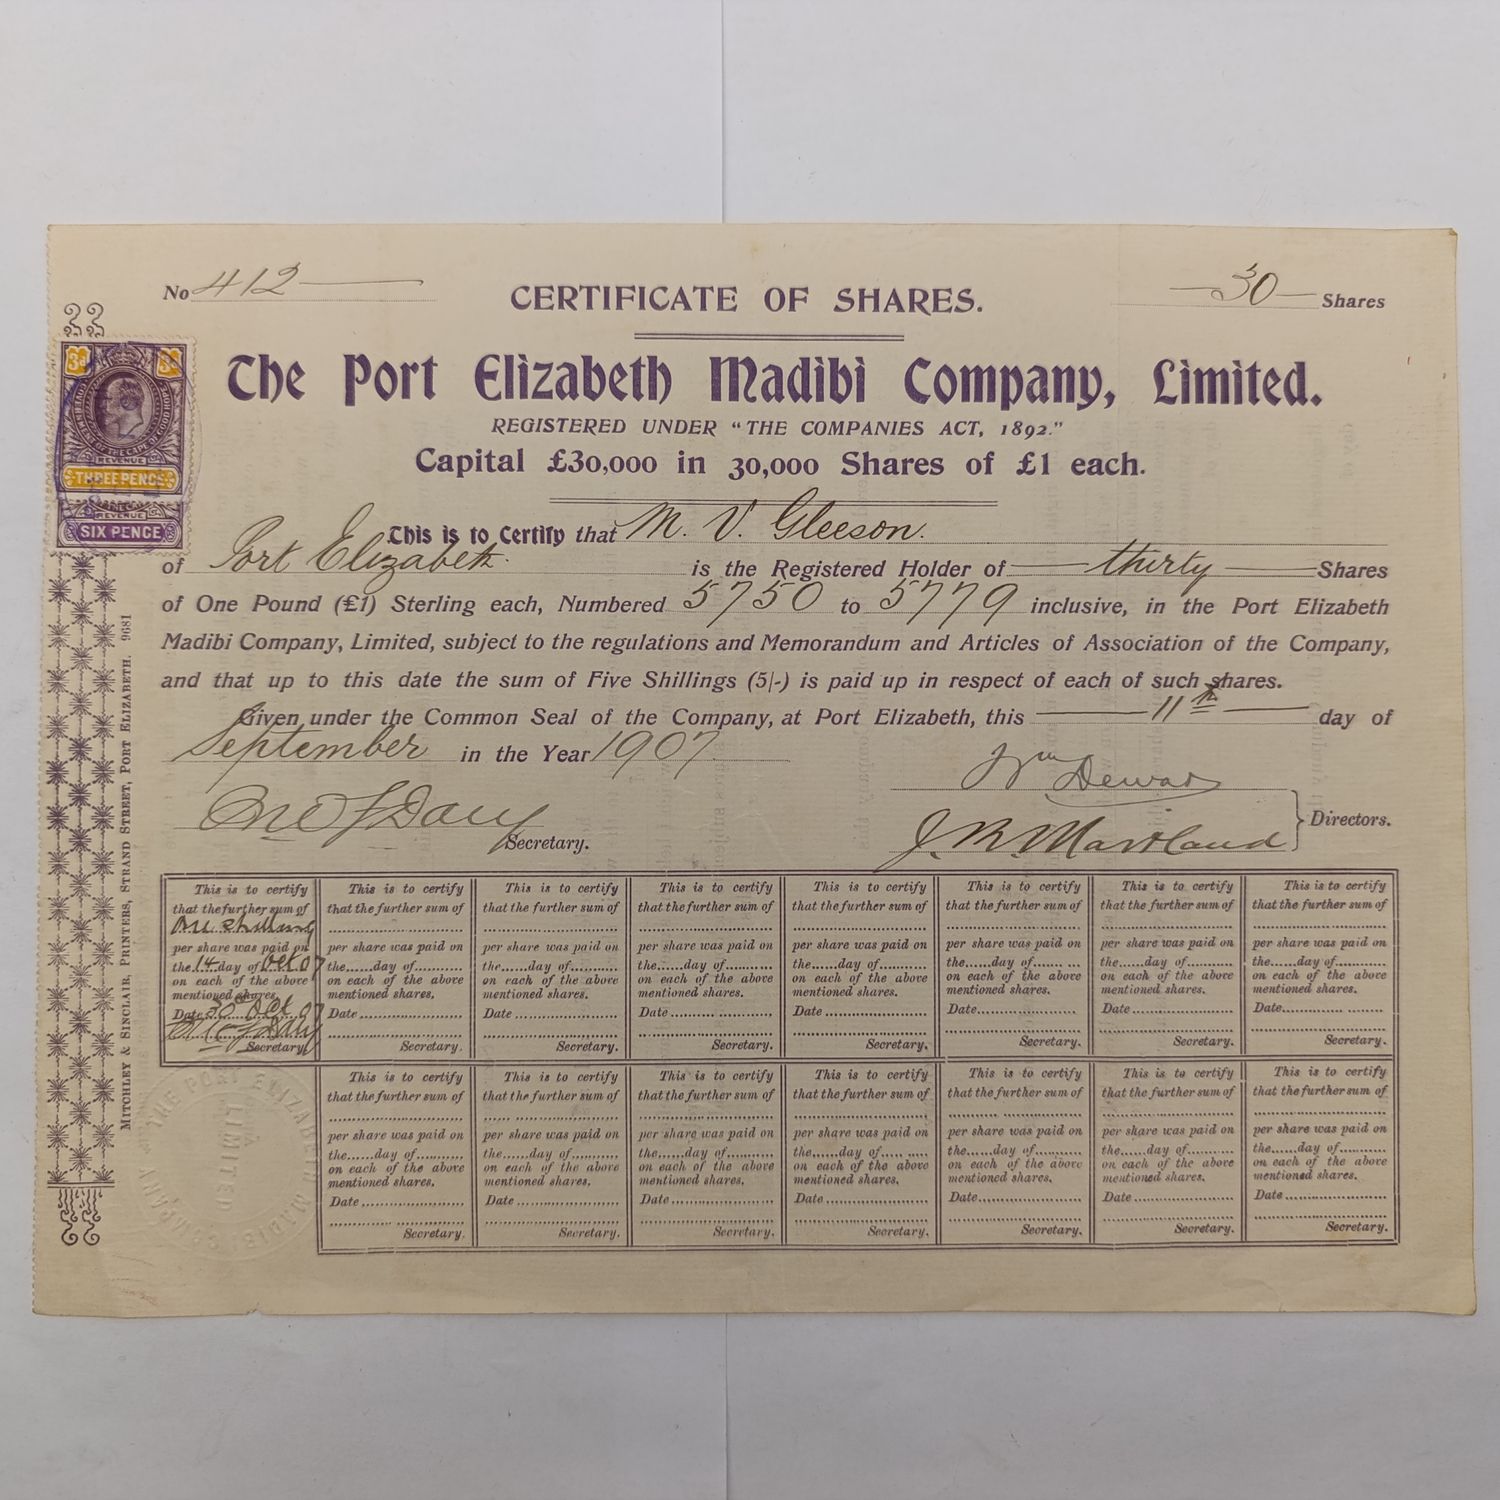 No 412
CERTIFICATE OF SHARES.
30 Shares
The Port Elizabeth Madibi Company, Limited.
REGISTERED UNDER "THE COMPANIES ACT, 1892."
Capital £30,000 in 30,000 Shares of £1 each.
3d 3d
REVENUE
THREE PENCE
REVENUE
SIX PENCE
This is to Certify that M. V. Gleeson.
of Port Elizabeth. is the Registered Holder of thirty Shares
of One Pound (£1) Sterling each, Numbered 5750 to 5779 inclusive, in the Port Elizabeth
Madibi Company, Limited, subject to the regulations and Memorandum and Articles of Association of the Company,
and that up to this date the sum of Five Shillings (5/-) is paid up in respect of each of such shares.
Given under the Common Seal of the Company, at Port Elizabeth, this 11th day of
September in the Year 1907.
Wm Dewar
Secretary.
J. R. Maitland
Directors.
MITCHLEY & SINCLAIR, PRINTERS, STRAND STREET, PORT ELIZABETH. 9681
This is to certify This is to certify This is to certify This is to certify This is to certify This is to certify This is to certify This is to certify
that the further sum of that the further sum of that the further sum of that the further sum of that the further sum of that the further sum of that the further sum of that the further sum of
One shilling
per share was paid on per share was paid on per share was paid on per share was paid on per share was paid on per share was paid on per share was paid on per share was paid on
the 14 day of Oct 07 the......day of.......... the......day of.......... the......day of.......... the......day of.......... the......day of.......... the......day of.......... the......day of..........
on each of the above on each of the above on each of the above on each of the above on each of the above on each of the above on each of the above on each of the above
mentioned shares. mentioned shares. mentioned shares. mentioned shares. mentioned shares. mentioned shares. mentioned shares. mentioned shares.
Date 30 Oct 07 Date Date Date Date Date Date Date
Secretary. Secretary. Secretary. Secretary. Secretary. Secretary. Secretary. Secretary.
This is to certify This is to certify This is to certify This is to certify This is to certify This is to certify This is to certify
that the further sum of that the further sum of that the further sum of that the further sum of that the further sum of that the further sum of that the further sum of
per share was paid on per share was paid on per share was paid on per share was paid on per share was paid on per share was paid on per share was paid on
the......day of.......... the......day of.......... the......day of.......... the......day of.......... the......day of.......... the......day of.......... the......day of..........
on each of the above on each of the above on each of the above on each of the above on each of the above on each of the above on each of the above
mentioned shares. mentioned shares. mentioned shares. mentioned shares. mentioned shares. mentioned shares. mentioned shares.
Date Date Date Date Date Date Date
Secretary. Secretary. Secretary. Secretary. Secretary. Secretary. Secretary.
THE PORT ELIZABETH MADIBI COMPANY
LIMITED